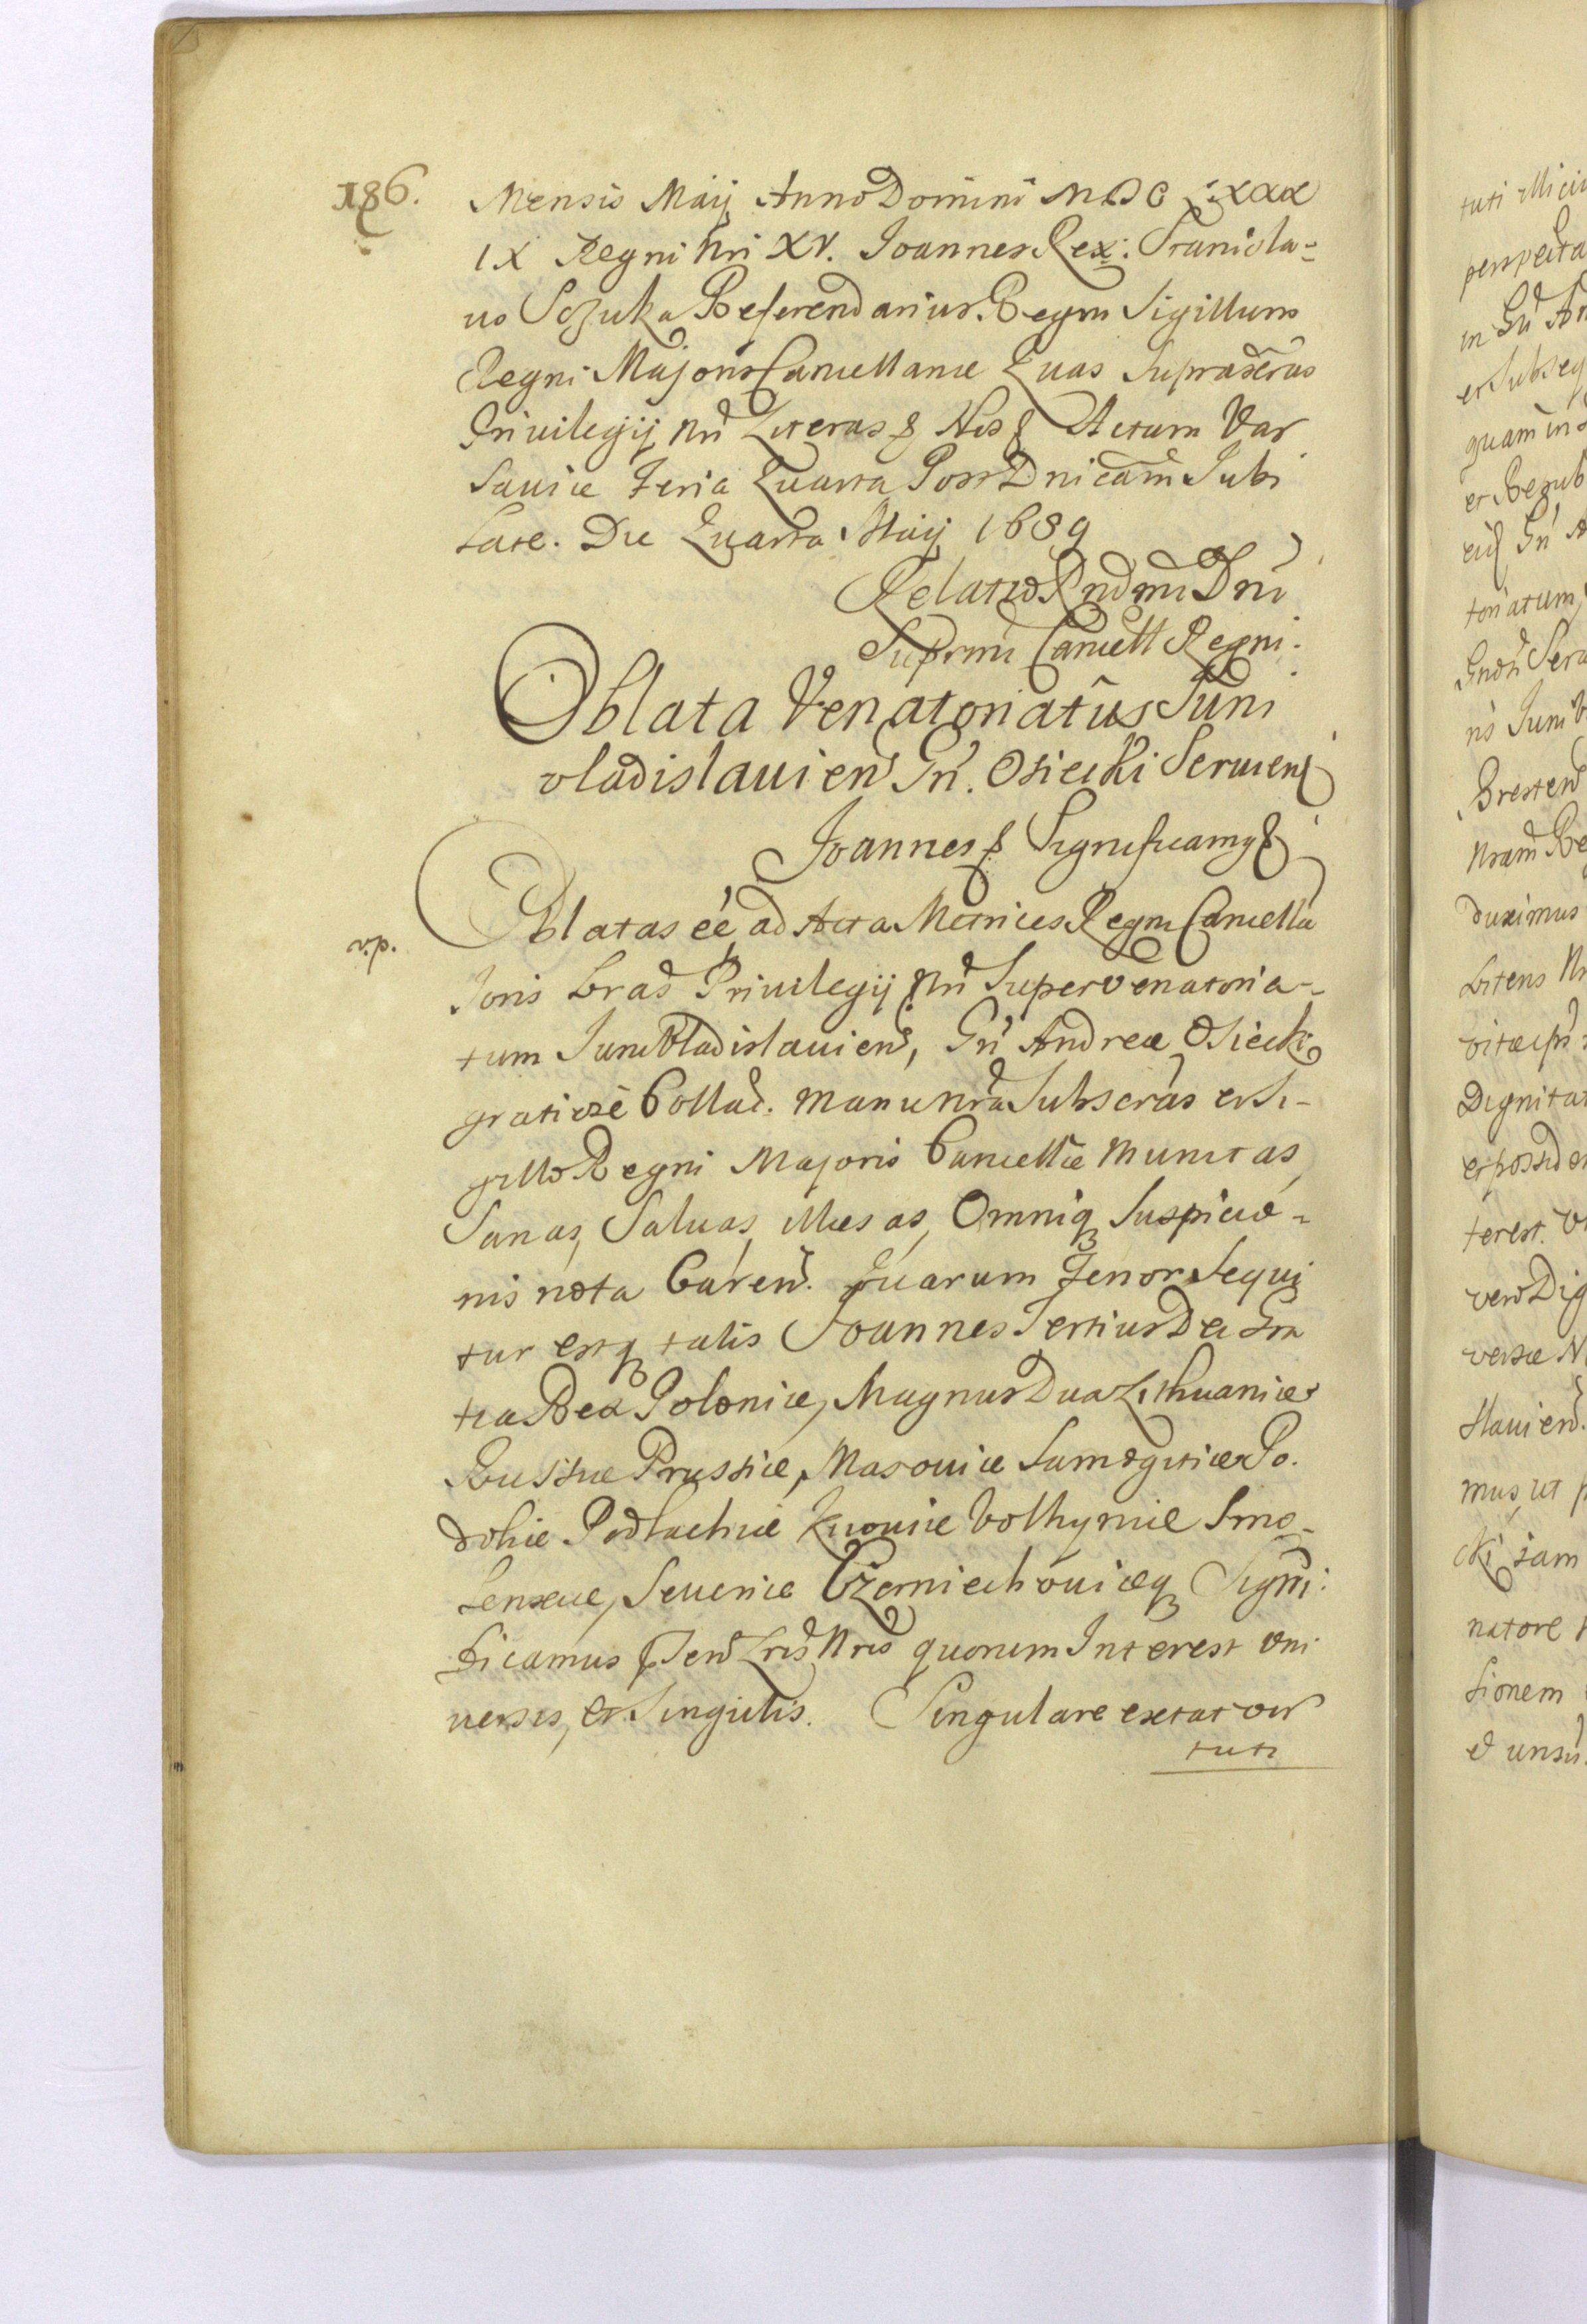 186.
Mensis Maij Anno Domini MDCLXXX
IX Regni Nri XV. Joannes Rex: Stanisla-
us Sczuka Referendarius Regni Sigillum
Regni Majoris Cancellariae Quas Supradctas
Privilegij Nri Literas & Nos & Actum Var
saviae Feria Quarta Post Dnicam Jubi
late. Die Quarta Maij 1689
Relatio Rndmi Dni
Supremi Cancell Regni.
Oblata Venatoriatus Juni
vladislavien Gn. Osiecki Servien
Joannes & Significamg &
v.p.
Oblatas eé ad Acta Metrices Regni Cancella
Joris Lras Privilegij Nri Super Venatoria-
tum Junivladislavien, Gn Andreae Osiecki
gratiose Collat. manu Nra Subscras et Si-
gillo Regni Majoris Cancellae Munitas,
Sanas, Salvas, illaesas, Omniq Suspicio-
nis nota Caren. Quarum Tenor Sequi
tur estq talis Joannes Tertius Dei Gra
tia Rex Poloniae, Magnus Dux Lithuaniae
Russiae Prussiae, Masoviae Samogitiae Po.
doliae Podlachiae Kijoviae Volhyniae Smo-
lensciae, Severiae Czerniechoviaeq Signi:
ficamus Psen Lris Nris quorum Interest Uni
versis, et Singulis. Singulare extat vir
tuti
tuti
perspecta
in Gn An
et Subseq
quam in
et Repub
eid Gn A
toriatum
ris Juni
Bresten
Nram Re
duximus
Literis Nr
vitae ips
Dignitat
et possiden
terest.
vero Dig
versae N
slavien.
mus, ut p
cki jam
natore
sionem